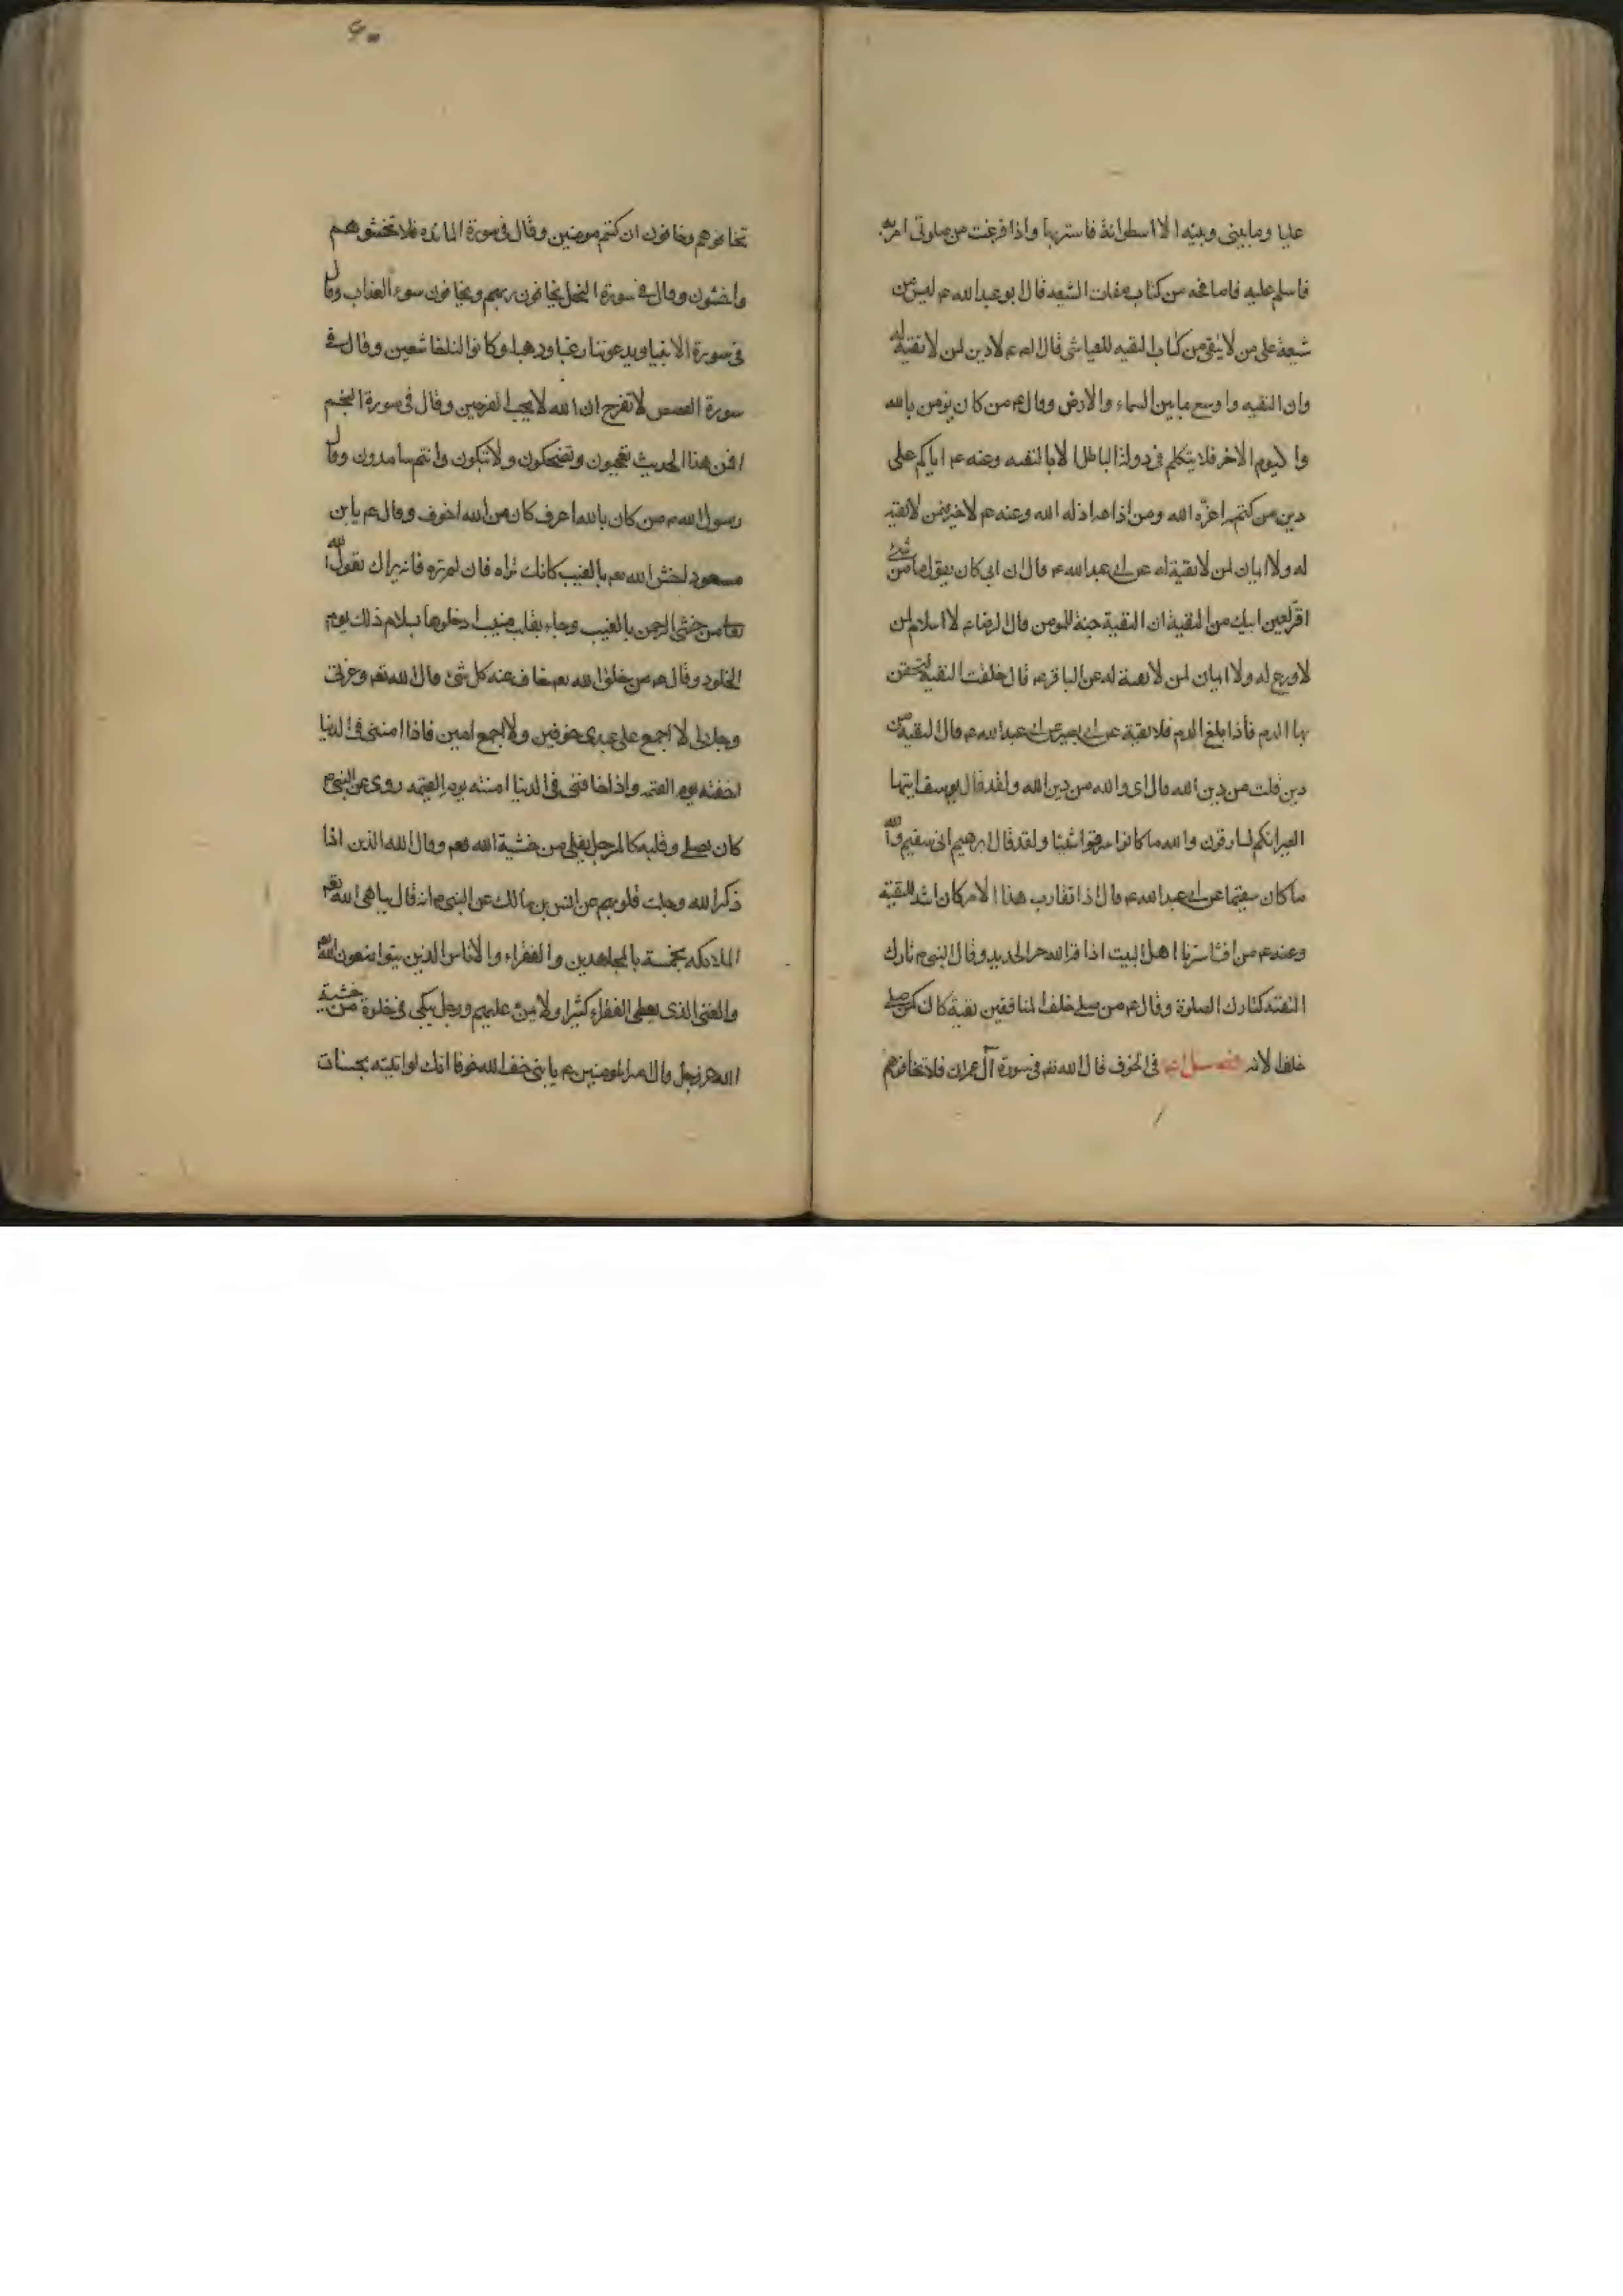 عليا وما بينى وبينه الا اسطوانة فاستر بها واذا فرغت من صلوتى امر به
فاسلم عليه فاصافحه من كتاب صفات الشيعه قال ابو عبدالله عم ليس من
شيعة على من لا يتقى من كتاب التقيه للعياشى قال لعم لا دين لمن لا تقية له
وان التقيه واوسع ما بين السماء والارض وقال عم من كان يؤمن بالله
واليوم الاخر فلا يتكلم فى دولة الباطل الا بالتقيه وعنه عم اياكم على
دين من كتمه اعزه الله ومن اذاعه اذله الله وعنه عم لا خير فيمن لا تقيه
له ولا ايمان لمن لا تقية له عن ابى عبدالله عم قال ان ابى كان يقول ما من شئ
اقر لعين ابيك من التقية ان التقية جنة للمومن قال الرضا عم لا اسلام لمن
لا ورع له ولا ايمان لمن لا تقية له عن الباقر عم قال خلقت التقيه ليحقن
بها الدم فاذا بلغ الدم فلا تقية عن ابى بصير عن ابى عبدالله عم قال التقيه من
دين قلت من دين الله قال اى والله من دين الله ولقد قال يوسف ايتها
العير انكم لسارقون والله ما كانوا سرقوا شيئا ولقد قال ابرهيم انى سقيم والله
ما كان سقيما عن ابى عبدالله عم قال اذا تقارب هذا الامر كان اشد للتقية
وعنه عم من افشا سرنا اهل البيت اذا قه الله حر الحديد وقال النبى م تارك
التقيه كتارك الصلوة وقال عم من صلى خلف المنافقين تقية كان كمن صلى
خلف الائمه فى الخوف قال الله تعم فى سورة آل عمران فلا تخافوهم
۶۰
تخافوهم وخافون ان كنتم مومنين وقال فى سورة المائده فلا تخشوهم
واخشون وقال فى سورة النحل يخافون ربهم ويخافون سوء العذاب وقال
فى سورة الانبيا ويدعوننا رغبا ورهبا وكانوا لنا خاشعين وقال فى
سورة القصص لا تفرح ان الله لا يحب الفرحين وقال فى سورة النجم
افمن هذا الحديث تعجبون وتضحكون ولا تبكون وانتم سامدون وقال
رسول الله م من كان بالله اعرف كان من الله اخوف وقال عم يابن
مسعود اخش الله تعم بالغيب كانك تراه فان لم تره فانه يراك يقول الله
تعا من خشى الرحمن بالغيب وجاء بقلب منيب ادخلوها بسلام ذلك يوم
الخلود وقال عم من خاف الله تعم خاف عنه كل شئ قال الله تعم وعزتى
وجلالى لا اجمع على عبدى خوفين ولا اجمع امنين فاذا امننى فى الدنيا
اخفته يوم القيمه واذا خافنى فى الدنيا امنته يوم القيمه روى عن النبى م
كان يصلى وقلبه كالمرجل يغلى من خشية الله تعم وقال الله الذين اذا
ذكر الله وجلت قلوبهم عن انس بن مالك عن النبى م انه قال يباهى الله تعم
الملائكه بخمسة بالمجاهدين والفقراء والاناس الذين يتواضعون لله
والغنى الذى يعطى الفقراء كثيرا ولا يمن عليهم ورجل يبكى فى خلوة من خشية
الله عز وجل قال امير المومنين عم يا بنى خف الله خوفا انك لو اتيته بحسنات